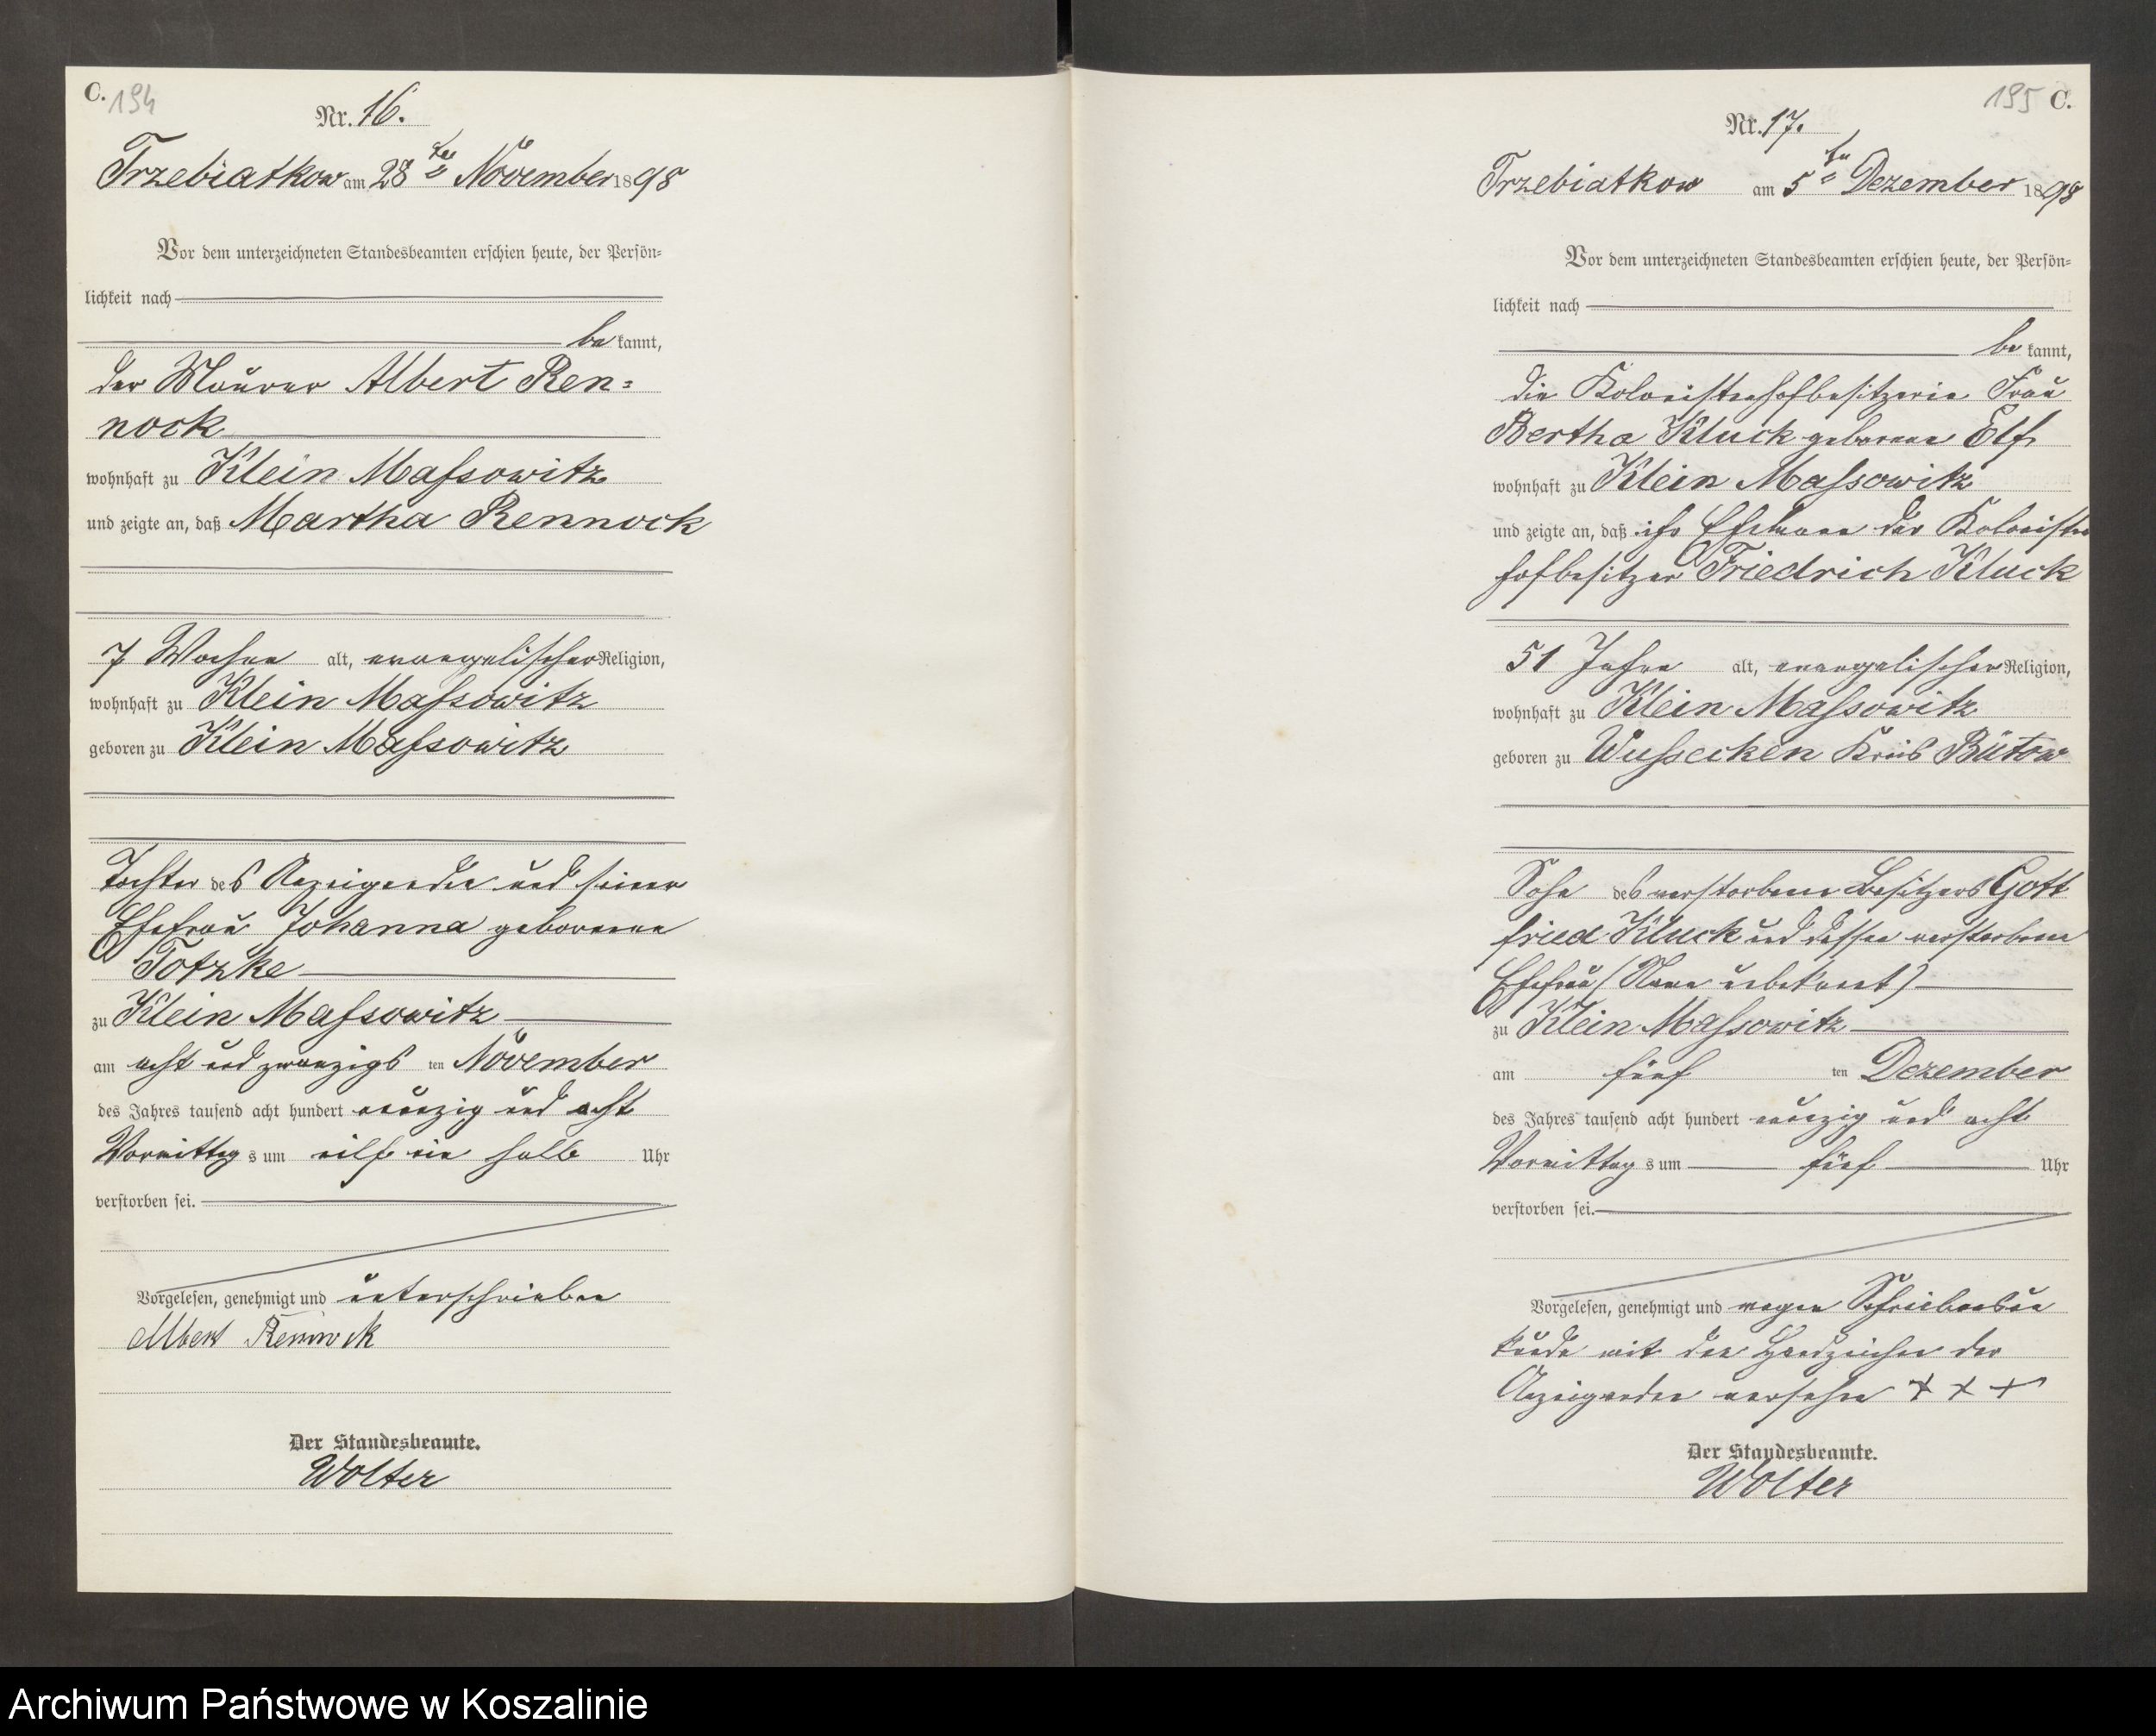 C. 194
Nr. 16.
Trzebiatkow am 28ten November 1898
Vor dem unterzeichneten Standesbeamten erschien heute, der Persön-
lichkeit nach
bekannt,
der Maurer Albert Ren-
nock
wohnhaft zu Klein Massowitz
und zeigte an, daß Martha Rennock
7 Wochen alt, evangelischer Religion,
wohnhaft zu Klein Massowitz
geboren zu Klein Massowitz
Tochter des Anzeigenden und seiner
Ehefrau Johanna geborenen
Totzke
zu Klein Massowitz
am acht und zwanzigsten November
des Jahres tausend acht hundert neunzig und acht
Vormittags um eilf ein halb Uhr
verstorben sei.
Vorgelesen, genehmigt und unterschrieben
Albert Rennock
Der Standesbeamte.
Wolter
195 C.
Nr. 17.
Trzebiatkow am 5ten Dezember 1898
Vor dem unterzeichneten Standesbeamten erschien heute, der Persön-
lichkeit nach
bekannt,
die Kolonistenhofbesitzerin Frau
Bertha Kluck geborene Elf
wohnhaft zu Klein Massowitz
und zeigte an, daß ihr Ehemann der Kolonisten
hofbesitzer Friedrich Kluck
51 Jahre alt, evangelischer Religion,
wohnhaft zu Klein Massowitz
geboren zu Wussecken Kreis Bütow
Sohn des verstorbenen Besitzers Gott
fried Kluck und dessen verstorbenen
Ehefrau (Name unbekannt)
zu Klein Massowitz
am fünften Dezember
des Jahres tausend acht hundert neunzig und acht
Vormittags um fünf Uhr
verstorben sei.
Vorgelesen, genehmigt und wegen Schreibensun
kunde mit den Handzeichen der
Anzeigenden versehen + + +
Der Standesbeamte.
Wolter
Archiwum Państwowe w Koszalinie